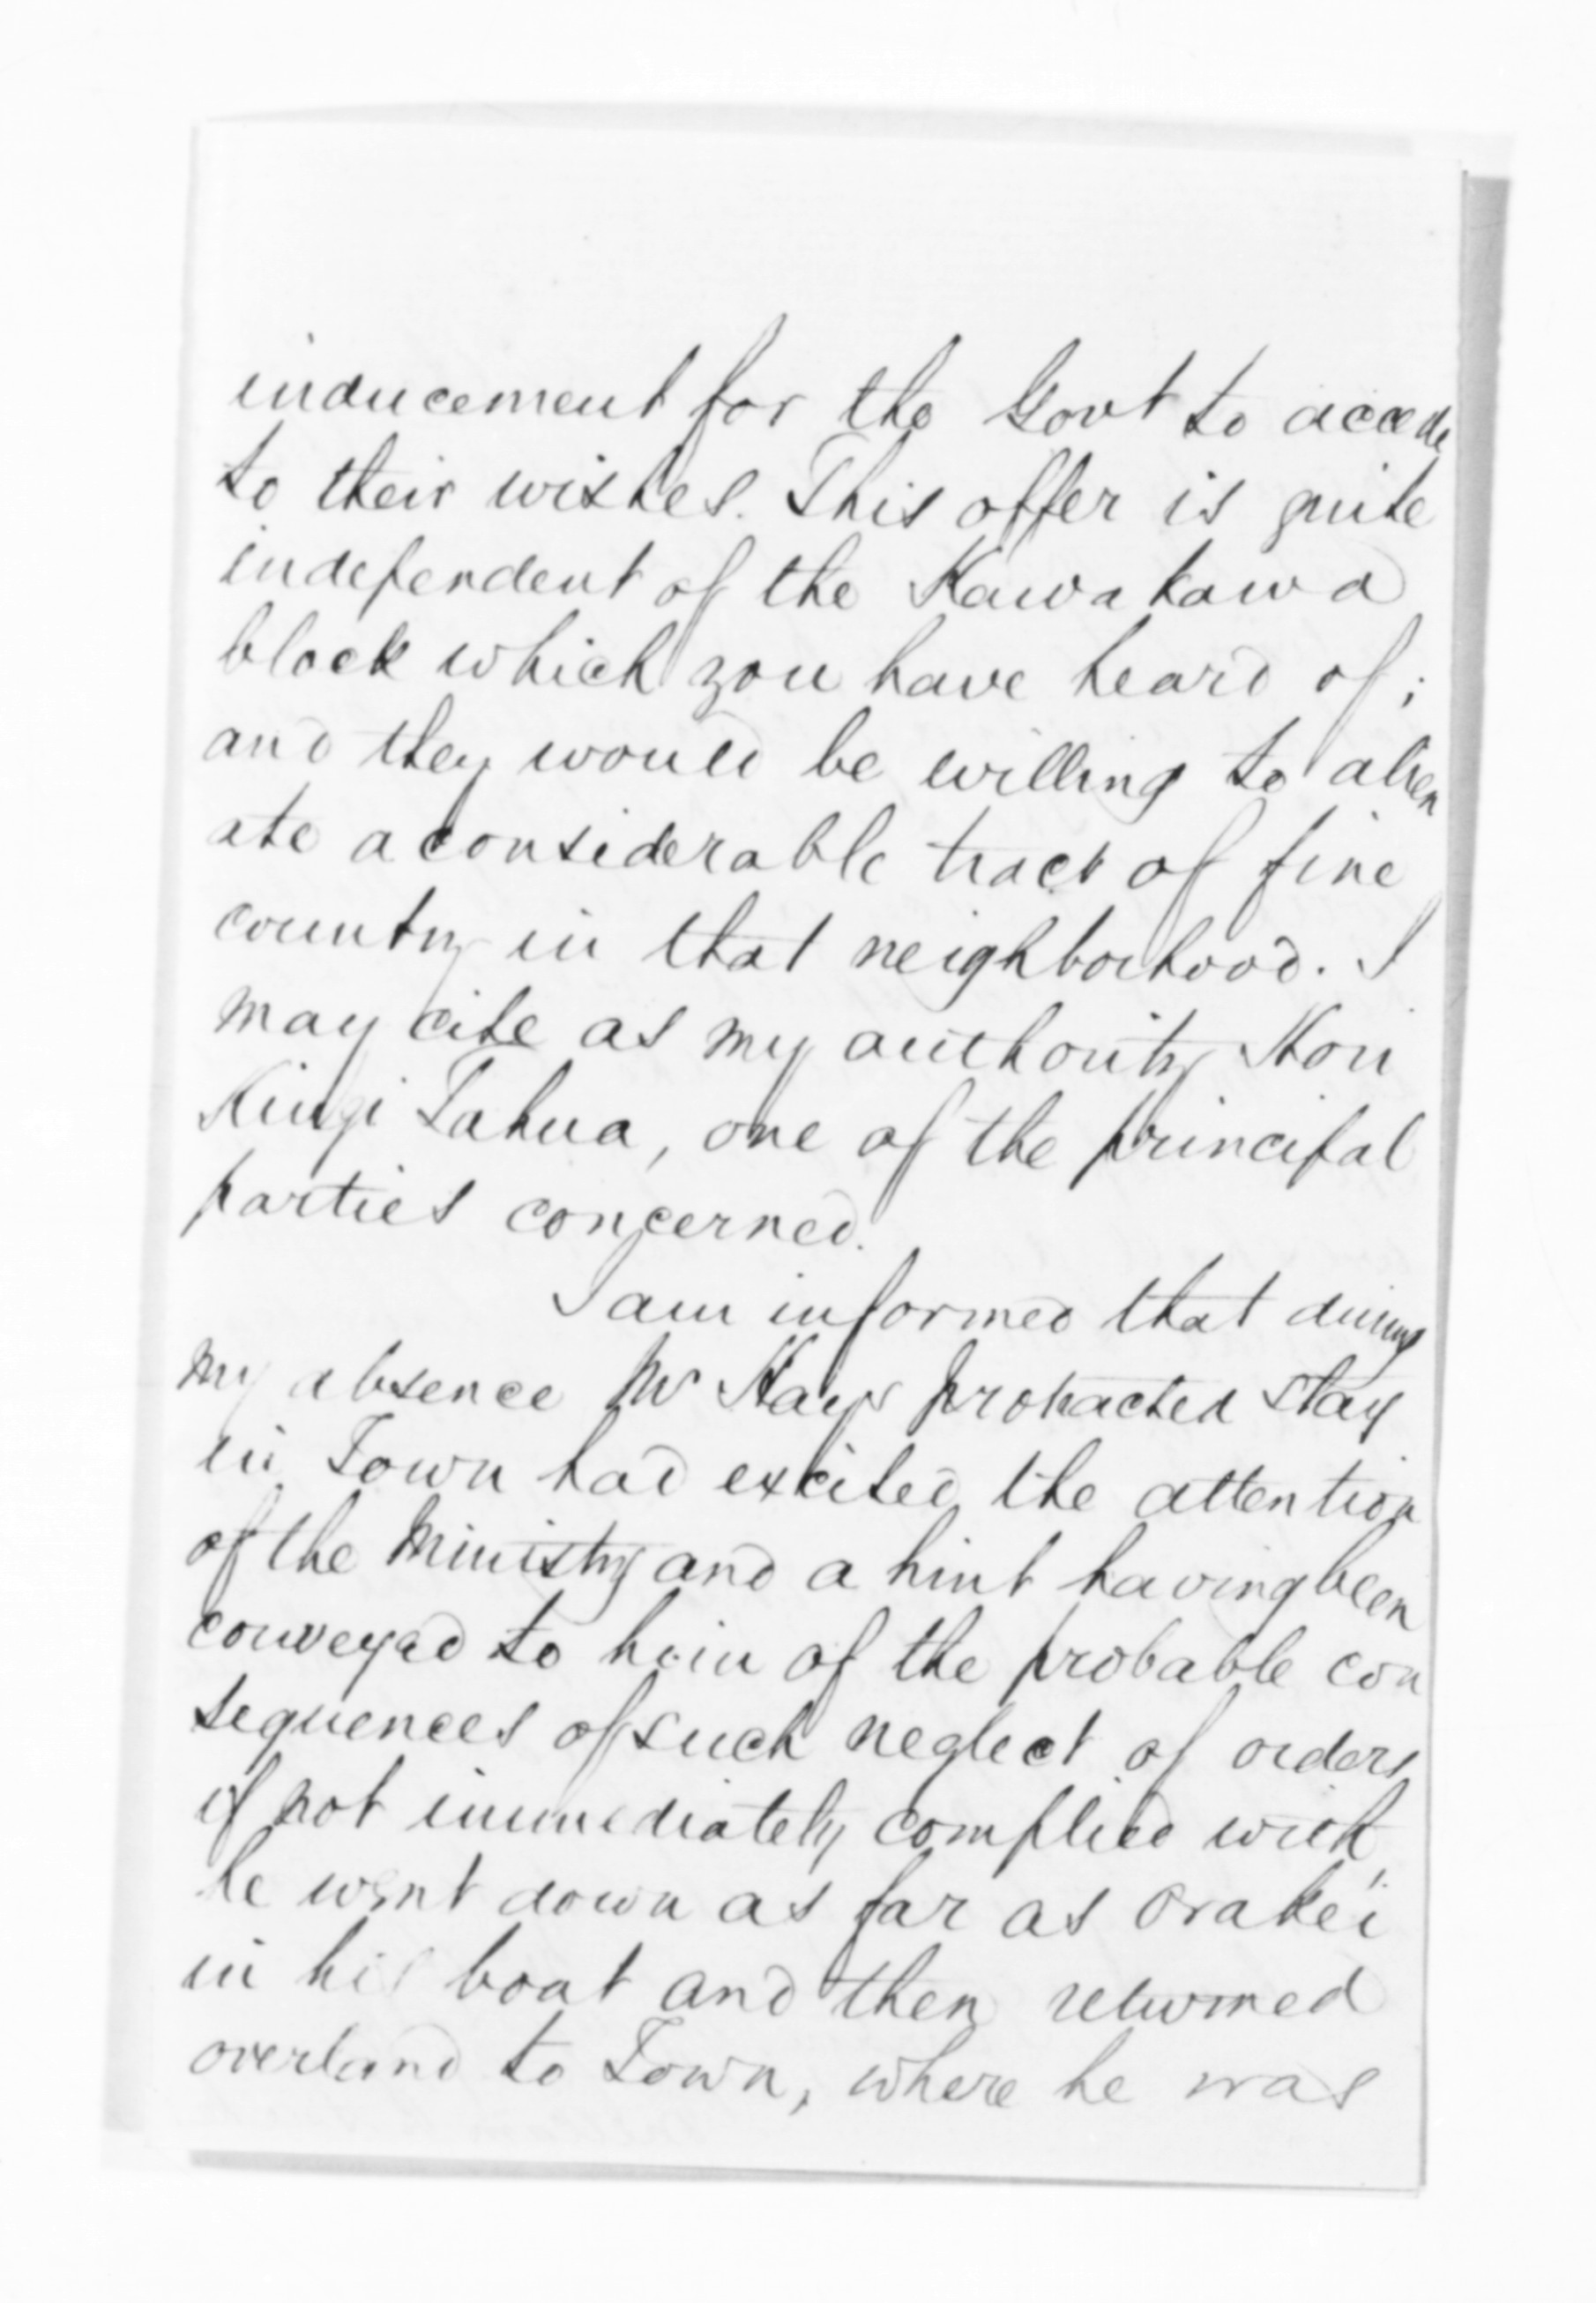 inducement for the Govt to accede
to their wishes. This offer is quite
independent of the Kawakawa
block which you have heard of;
and they would be willing to alien
ate a considerable tract of fine
country in that neighborhood. I
may cite as my authority Hori
Kingi Tahua, one of the principal
parties concerned.
I am informed that during
my absence Mr Hays protracted stay
in Town had excited the attention
of the Ministry and a hint having been
conveyed to him of the probable con
sequences of such neglect of orders
if not immediately complied with,
he went down as far as Orakei
in his boat and then returned
overland to Town, where he was